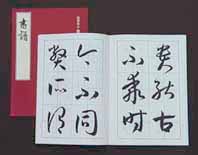 貴能古
不乖時
今不同
弊所謂
書譜